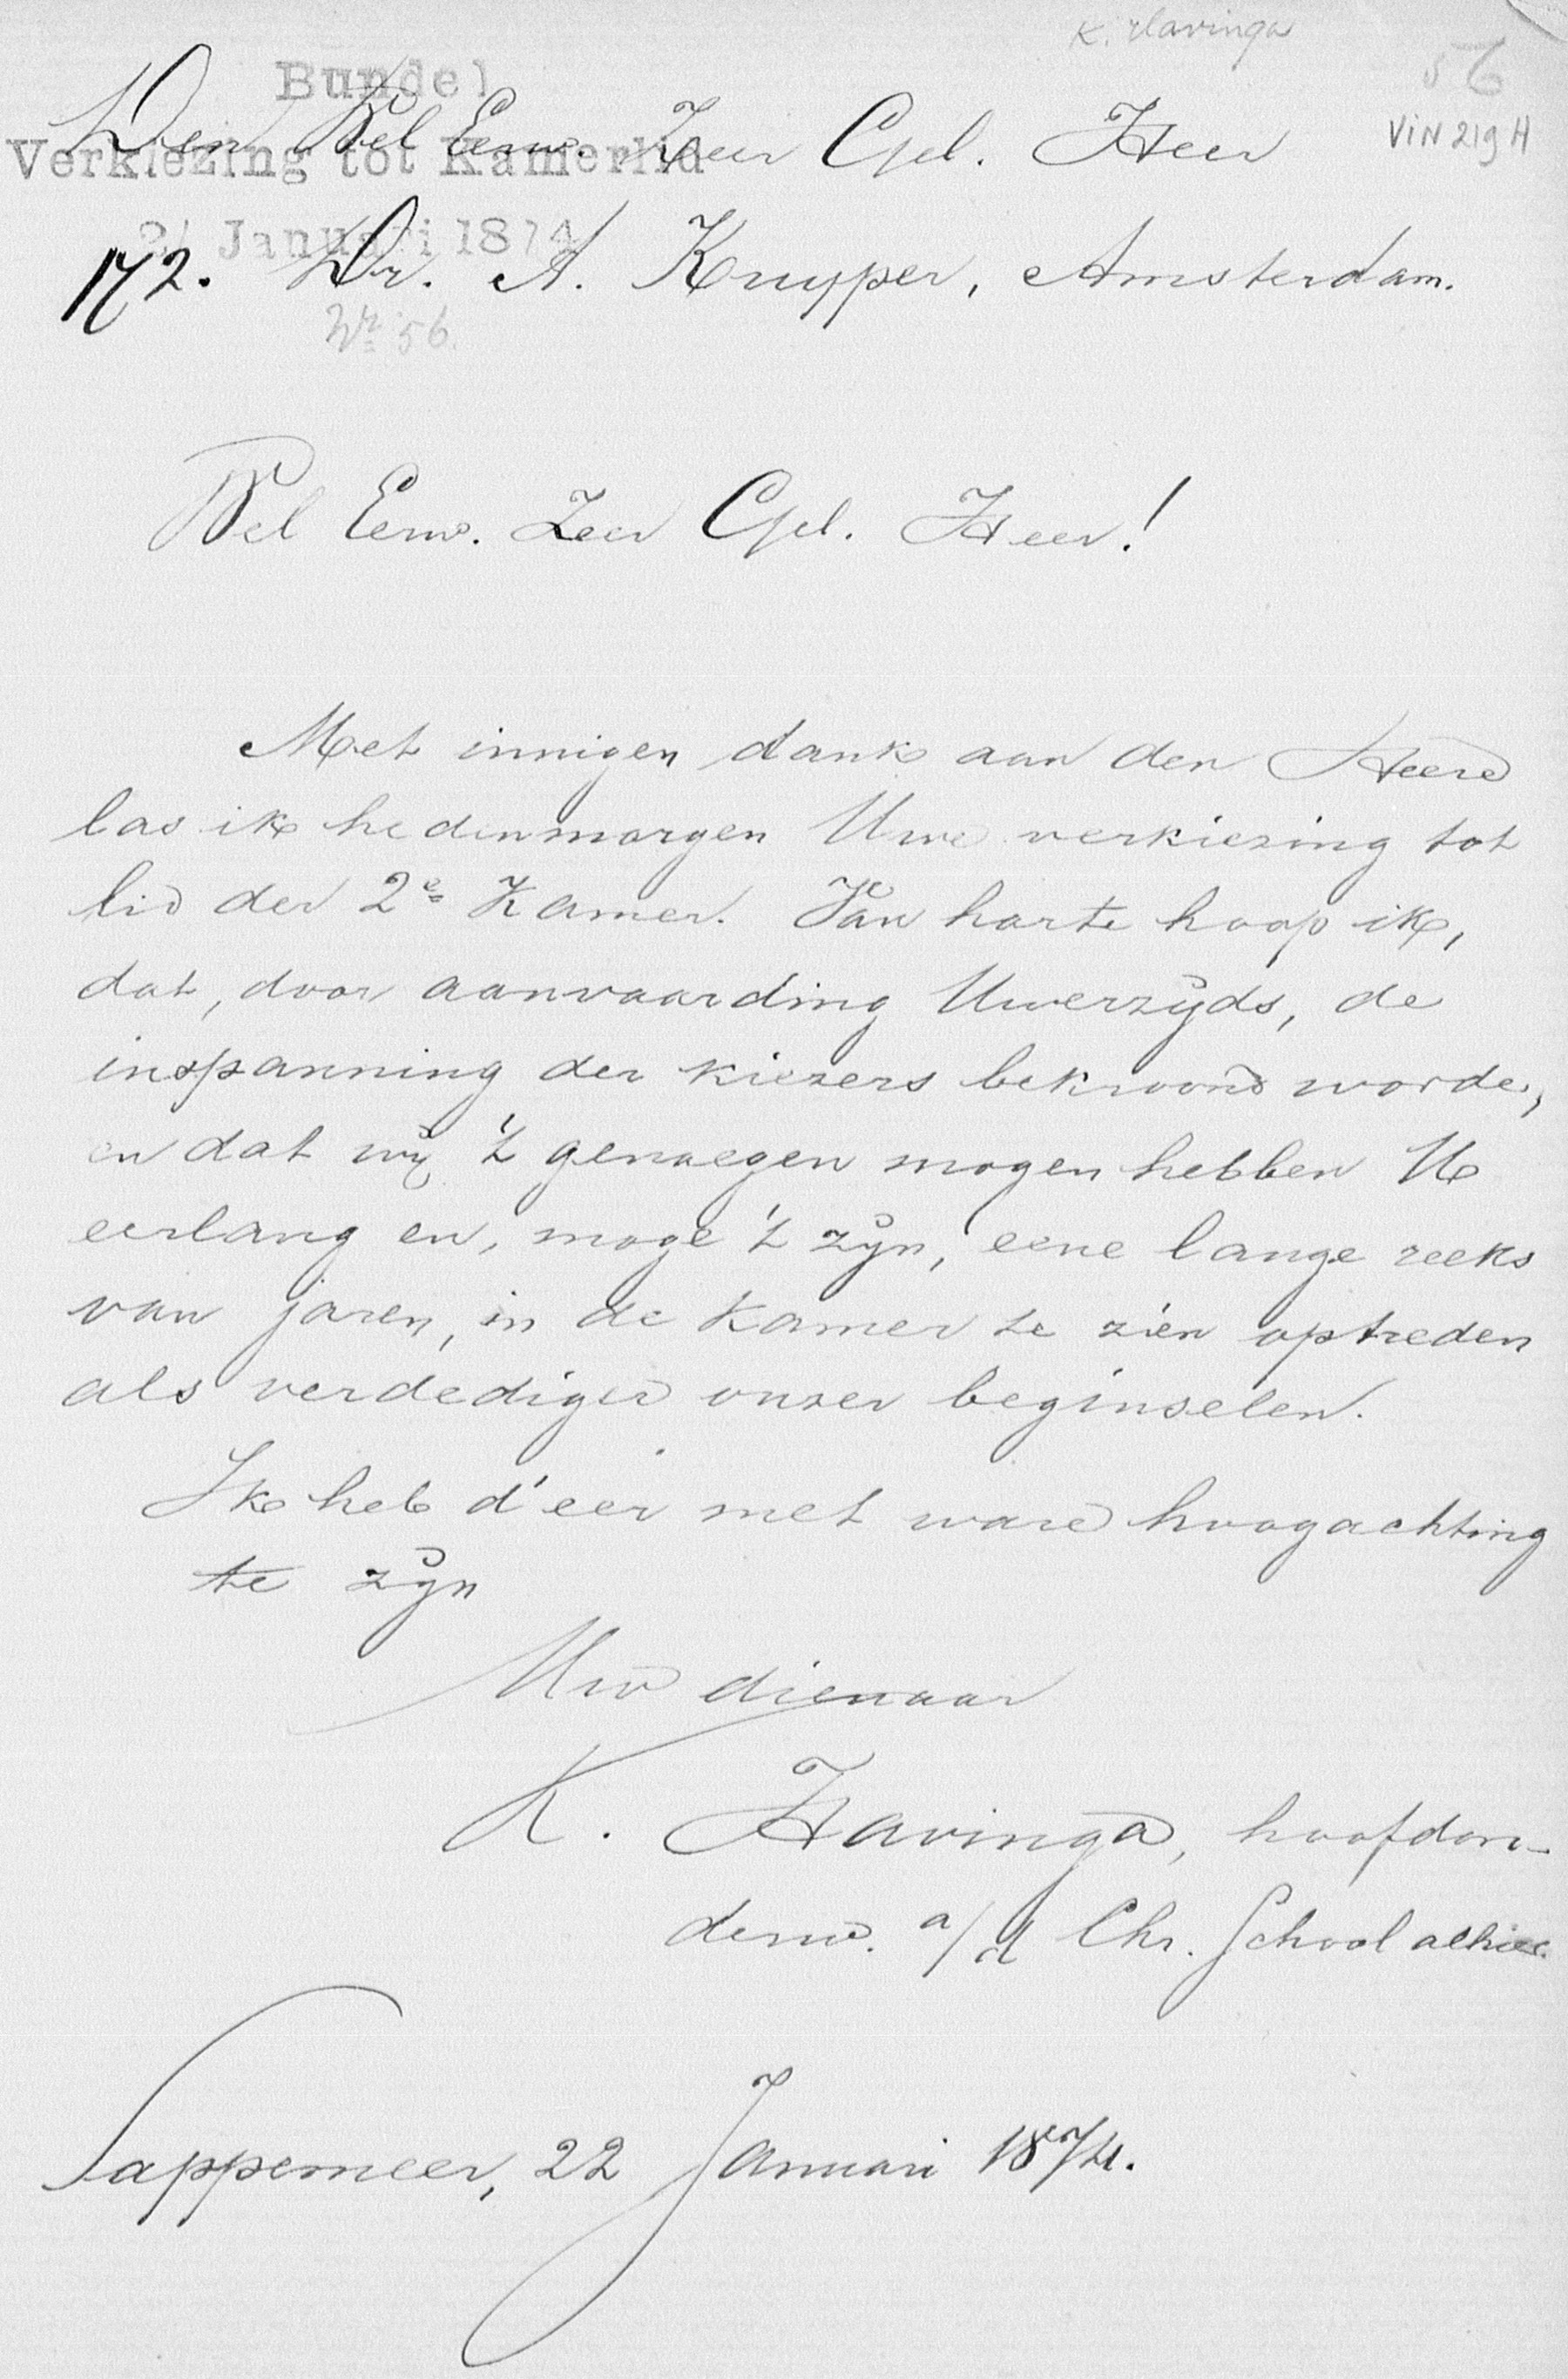 K. Havinga
56
VIN 219 H
Bundel
Verkiezing tot Kamerlid
21 Januari 1874
Nr. 56.
Den Wel Eerw. Zeer Gel. Heer
172. Dr. A. Kuyper, Amsterdam.
Wel Eerw. Zeer Gel. Heer!
Met innigen dank aan den Heere
las ik hedenmorgen Uwe verkiezing tot
lid der 2e Kamer. Van harte hoop ik,
dat, door aanvaarding Uwerzijds, de
inspanning der kiezers bekroond worde,
en dat wij 't genoegen mogen hebben U
eerlang en, moge 't zijn, eene lange reeks
van jaren, in de Kamer te zien optreden
als verdediger onzer beginselen.
Ik heb d'eer met ware hoogachting
te zijn
Uw dienaar
K. Havinga, hoofdon-
derw. a/d Chr. School alhier.
Sappemeer, 22 Januari 1874.